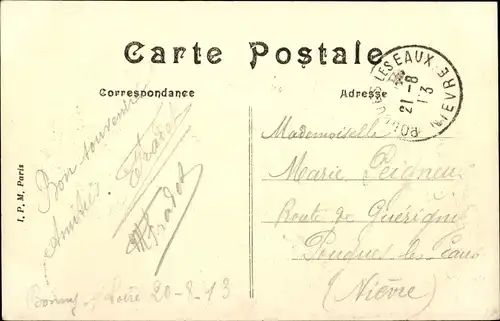 Carte Postale
Correspondance
Adresse
POUGUES-LES-EAUX
21 - 8
13
NIEVRE
Bon souvenir
Amitiés
M Fradet
Bonny s/ Loire 20-8-13
Mademoiselle
Marie
Route de Guérigny
Pougues les Eaux
(Nièvre)
I. P. M. Paris